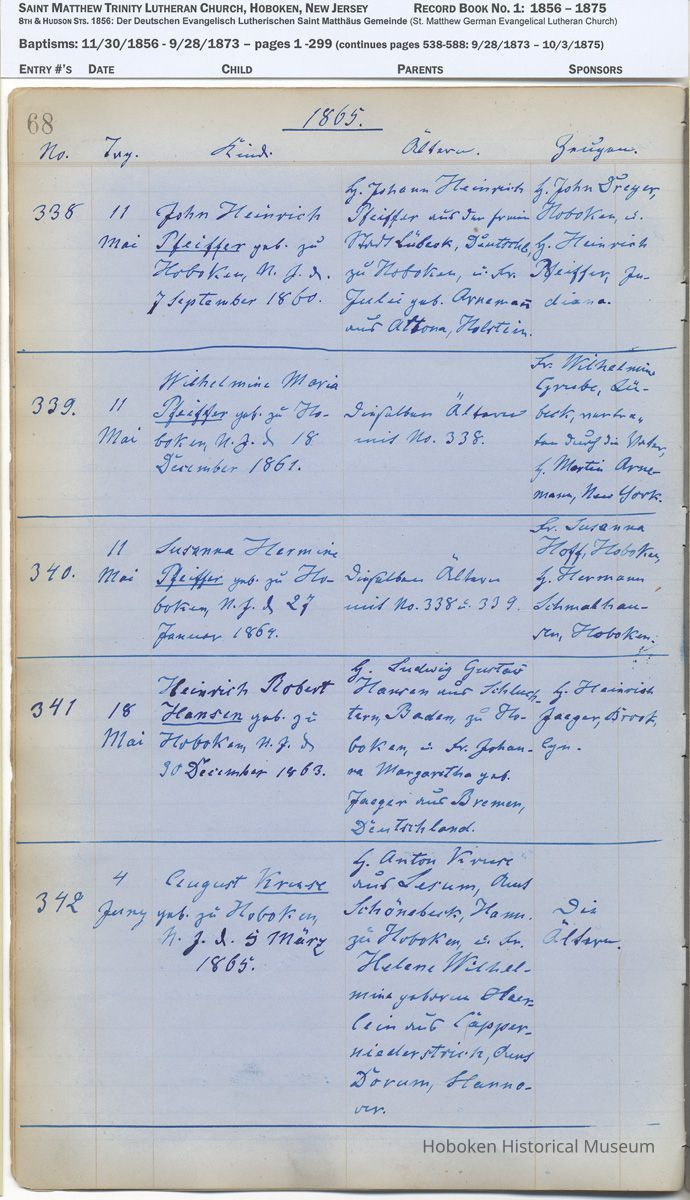 SAINT MATTHEW TRINITY LUTHERAN CHURCH, HOBOKEN, NEW JERSEY RECORD BOOK NO. 1: 1856 – 1875
8TH & HUDSON STS. 1856: Der Deutschen Evangelisch Lutherischen Saint Matthäus Gemeinde (St. Matthew German Evangelical Lutheran Church)
Baptisms: 11/30/1856 - 9/28/1873 – pages 1 -299 (continues pages 538-588: 9/28/1873 – 10/3/1875)
ENTRY #'S DATE CHILD PARENTS SPONSORS
68
1865.
No. Tag. Kind. Ältern. Zeugen.
338
11
Mai
John Heinrich
Pfeiffer geb. zu
Hoboken, N. J. d.
7 September 1860.
H. Johann Heinrich
Pfeiffer aus der freien
Stadt Lübeck, Deutschl.,
zu Hoboken, u. Fr.
Julei geb. Arnemann
aus Altona, Holstein.
H. John Dreyer,
Hoboken, u.
H. Heinrich
Pfeiffer, In-
diana.
339.
11
Mai
Wilhelmine Maria
Pfeiffer geb. zu Ho-
boken, N. J. d. 18
December 1861.
Dieselben Ältern
mit No. 338.
Fr. Wilhelmine
Grube, Lü-
beck, vertre-
ten durch die Vater,
H. Martin Arne-
mann, New York.
340.
11
Mai
Susanna Hermine
Pfeiffer geb. zu Ho-
boken, N. J. d. 27
Januar 1864.
Dieselben Ältern
mit No. 338 u. 339.
Fr. Susanna
Hoff, Hoboken,
H. Hermann
Schmalhau-
sen, Hoboken.
341
18
Mai
Heinrich Robert
Hansen geb. zu
Hoboken, N. J. d.
30 December 1863.
H. Ludwig Gustav
Hansen aus Schluch-
tern, Baden, zu Ho-
boken, u. Fr. Johan-
na Margaretha geb.
Jaeger aus Bremen,
Deutschland.
H. Heinrich
Jaeger, Brook
lyn.
342
4
Juny
August Kruse
geb. zu Hoboken,
N. J. d. 5 März
1865.
H. Anton Kruse
aus Lesum, Amt
Schönebeck, Hann.
zu Hoboken, u. Fr.
Helene Wilhel-
mine geboren
lein aus Capper-
niederstrich, Amt
Dorum, Hanno-
ver.
Die
Ältern.
Hoboken Historical Museum